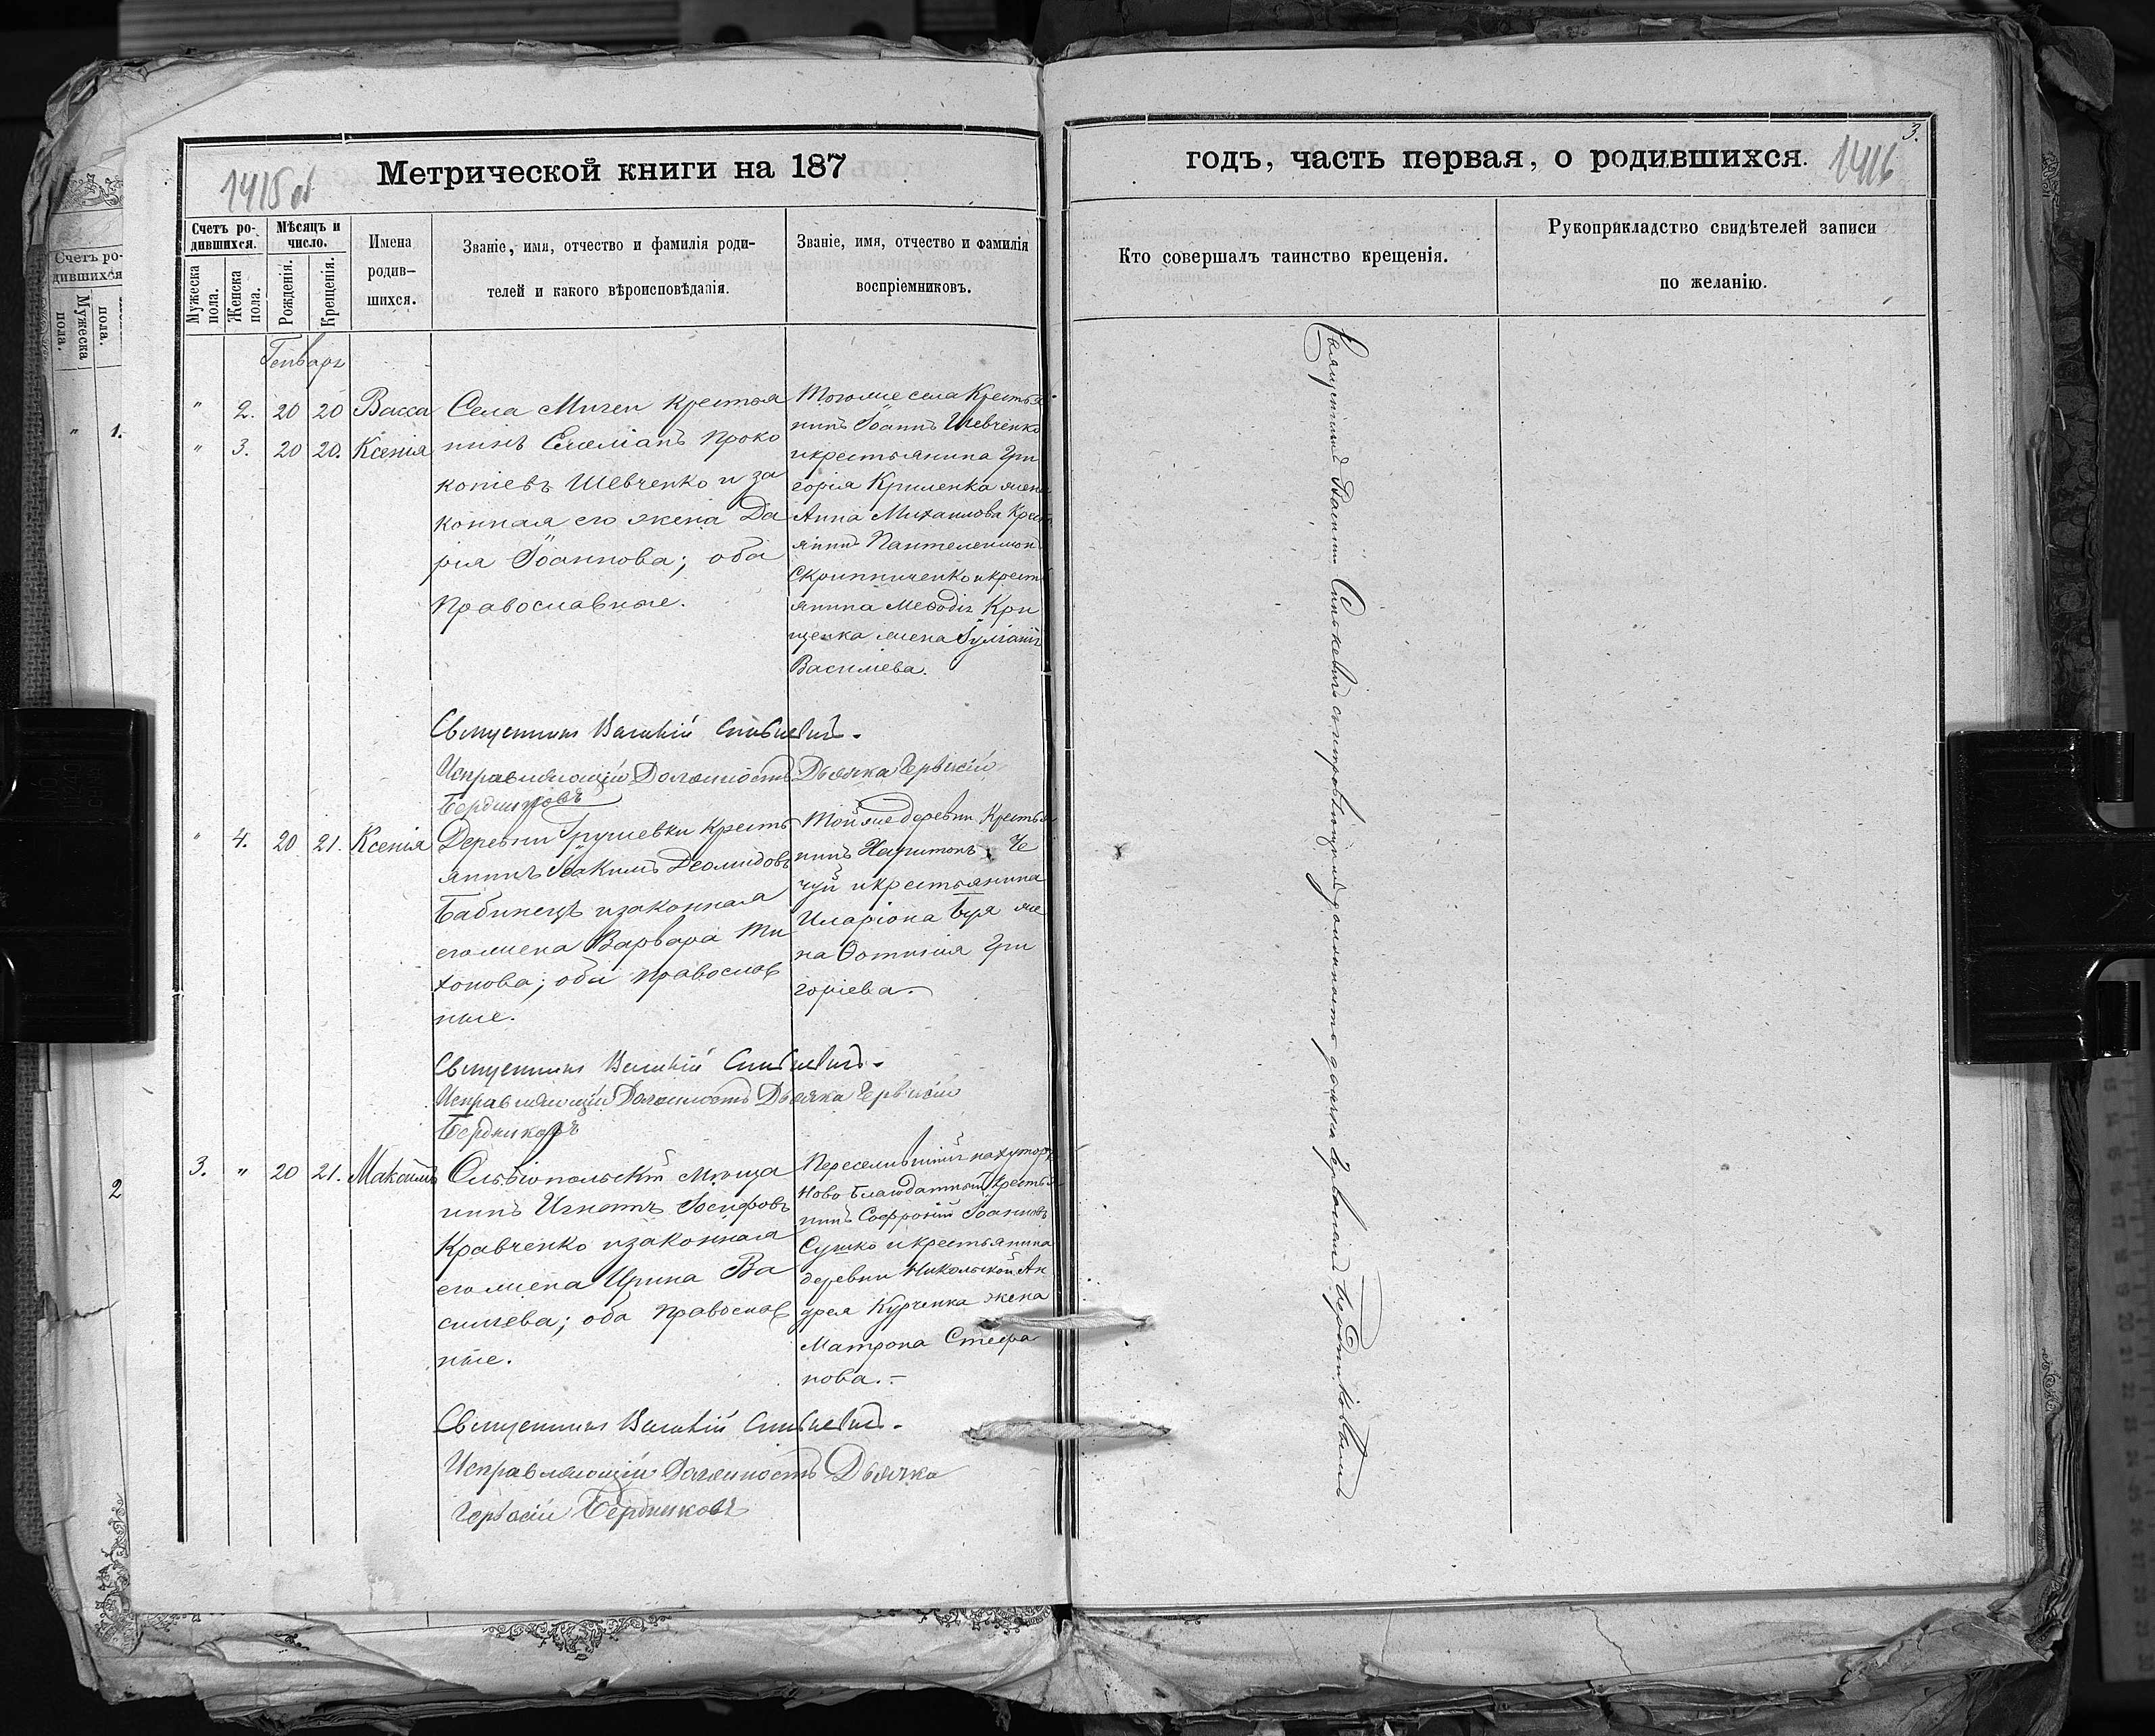 1415 об
Метрической книги на 187
Счетъ ро-
дившихся.
Мужеска
пола.
Женска
пола.
Мѣсяцъ и
число.
Рожденія.
Крещенія.
Имена
родив-
шихся.
Званіе, имя, отчество и фамилія роди-
телей и какого вѣроисповѣданія.
Званіе, имя, отчество и фамилія
воспріемниковъ.
Генварь
" 2. 20 20 Васса
" 3. 20 20. Ксенія
Села Мигеи крестья
нинъ Емеліанъ Проко
копіевъ Шевченко и за
конная его жена Да
рія Іоаннова; оба
православные.
Тогоже села Крестья
нинъ Іоаннъ Шевченко
и крестьянина Гри
горія Криленка жена
Анна Михаилова Крест
янинъ Пантелеимон
Скрипниченко и крест
янина Меѳодія Кри
щенка жена Іуліанія
Василіева.
Священникъ Василій Синькевичъ.
Исправляющій Должность Дьячка Герва́сій
Бердниковъ
" 4. 20 21. Ксенія
Деревни Грушевки Кресть
янинъ Іоакимъ Деомидовъ
Бабинецъ и законная
его жена Варвара Ти
хонова; оба православ
ные.
Той же деревни Крестья
нинъ Харитонъ Че
чуй и крестьянина
Иларіона Буя же
на Фотинія Гри
горіева.
Священникъ Василій Синькевичъ.
Исправляющій Должность Дьячка Гервасій
Бердниковъ
3. " 20 21. Максимъ
Ольвіопольскій Мѣща
нинъ Игнатъ Іосифовъ
Кравченко и законная
его жена Ирина Ва
силіева; оба православ
ные.
Переселившійся на хуторъ
Ново Благодатный Крестья
нинъ Софроній Іоанновъ
Сушко и крестьянина
деревни Никольской Ан
дрея Курченка жена
Матрона Стефа
нова.
Священникъ Василій Синькевичъ.
Исправляющій Должность Дьячка
Гервасій Бердниковъ
годъ, часть первая, о родившихся.
3.
1416
Кто совершалъ таинство крещенія.
Рукоприкладство свидѣтелей записи
по желанію.
Священникъ Василій Синькевичъ съ исправляющимъ должность дьячка Гервасіемъ Бердниковымъ
Счетъ ро-
дившихся
Мужеска
пола.
пола.
" 1.
2